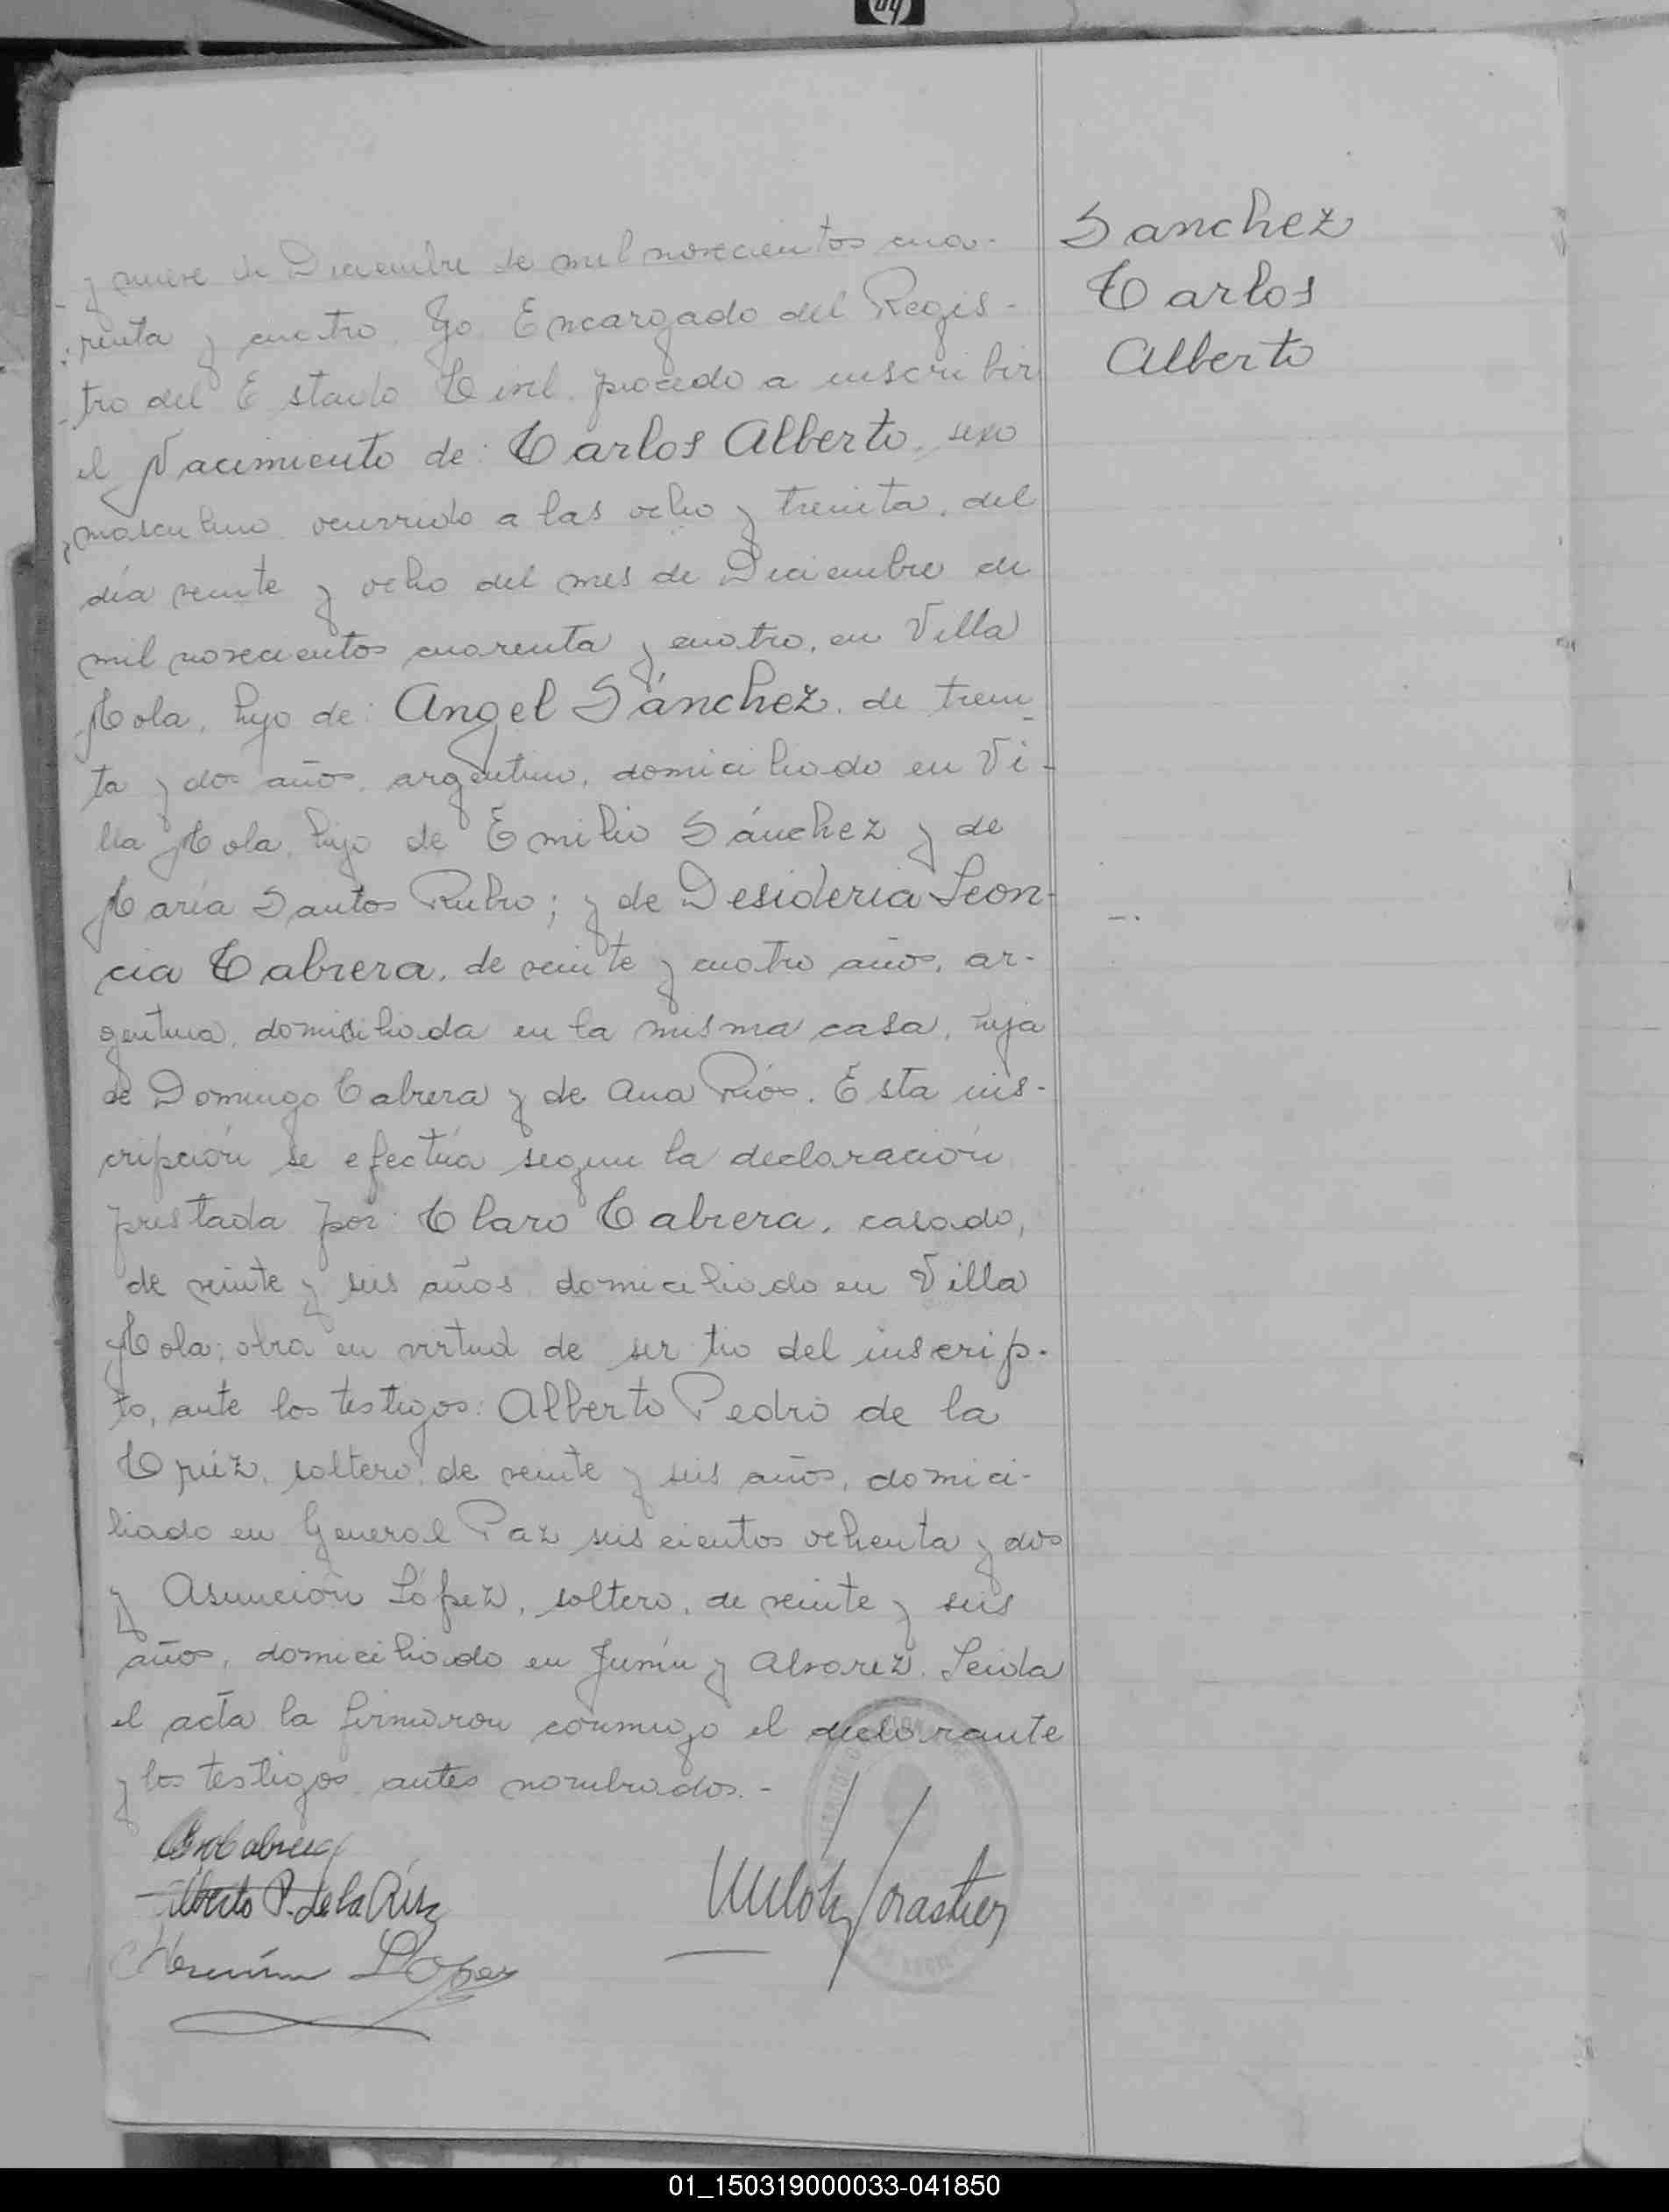 hp
y nueve de Diciembre de mil novecientos cua-
renta y cuatro. Yo Encargado del Regis-
tro del Estado Civil, procedo a inscribir
el Nacimiento de: Carlos Alberto, sexo
masculino ocurrido a las ocho y treinta, del
día veinte y ocho del mes de Diciembre de
mil novecientos cuarenta y cuatro, en Villa
Mola, hijo de: Angel Sánchez, de trein-
ta y dos años, argentino, domiciliado en Vi-
lla Mola, hijo de Emilio Sánchez y de
María Santos Rubio; y de Desideria Leon-
cia Cabrera, de veinte y cuatro años, ar-
gentina, domiciliada en la misma casa, hija
de Domingo Cabrera y de Ana Ríos. Esta ins-
cripción se efectúa segun la declaración
prestada por: Claro Cabrera, casado,
de veinte y seis años domiciliado en Villa
Mola; obra en virtud de ser tio del inscrip-
to, ante los testigos: Alberto Pedro de la
soltero, de veinte y seis años, domici-
liado en General Paz seis cientos ochenta y dos
y Asunción López, soltero, de veinte y seis
años, domiciliado en Junín y Alvarez. Leida
el acta la firmaron conmigo el declarante
y los testigos antes nombrados.-
Cabrera
Alberto P. de la
López
Sanchez
Carlos
Alberto
01_150319000033-041850